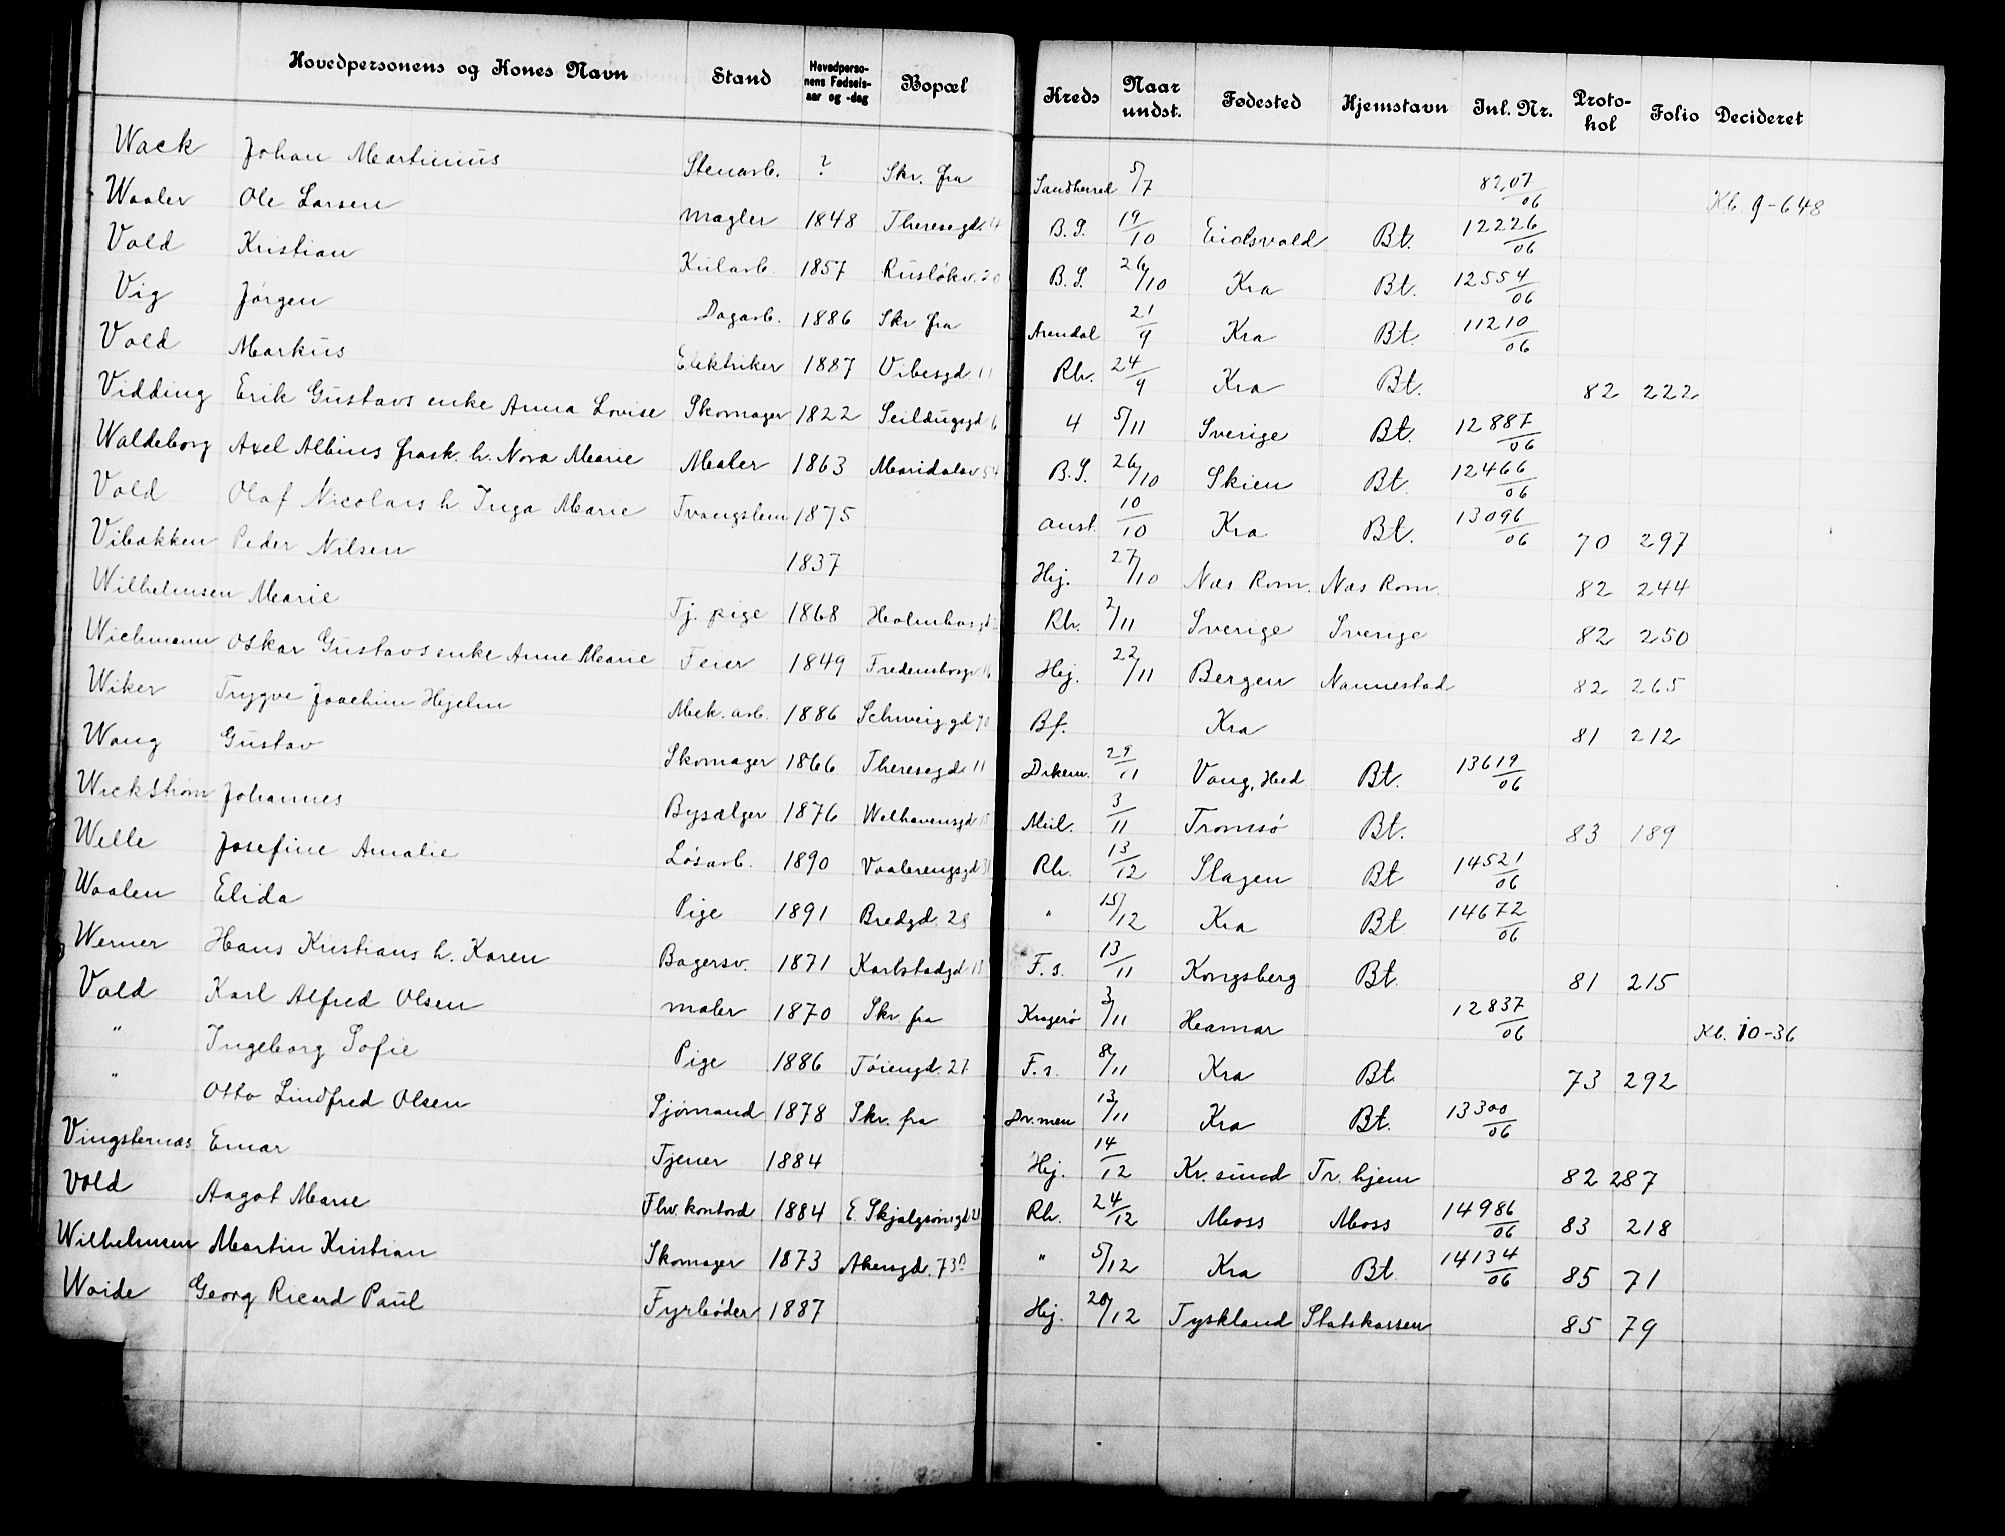 Hovedpersonens og Kones Navn Stand Hovedperso-nens Fødsels-aar og -dag Bopæl Kreds Naar undst. Fødested Hjemstavn Inl. Nr. Proto-kol Folio Decideret
Wack Johan Martinius Stenarb. ? Skr. fra Sandherred 5/7 8207/06 Kb. 9-648
Waaler Ole Larsen Mægler 1848 Theresegd. B.S. 19/10 Eidsvold Bt. 12226/06
Vold Kristian Kularb. 1857 Rusløkv. 20 B.S. 26/10 Kra Bt. 12554/06
Vig Jørgen Dagarb. 1886 Skr fra Arendal 21/9 Kra Bt. 11210/06
Vold Markus Elektriker 1887 Vibesgd. 11 Rh. 24/9 Kra Bt. 82 222
Vidding Erik Gustavs enke Anna Lovise Skomager 1822 Seildugsgd 6 4 5/11 Sverige Bt. 12887/06
Waldeborg Axel Albins frask. h. Nora Marie Maler 1863 Maridalsv 54 B.S. 26/10 Skien Bt. 12466/06
Vold Olaf Nicolais h Inga Marie Tvangslem 1875 Anst. 10/10 Kra Bt. 13096/06 70 297
Vibakken Peder Nilsen 1837 Hej. 27/10 Næs Rom. Næs Rom. 82 244
Wilhelmsen Marie Tj. pige 1868 Holmbosgd Rh. 2/11 Sverige Sverige 82 250
Wichmann Oskar Gustavs enke Anne Marie Feier 1849 Fredensborgv 16 Hej. 22/11 Bergen Nannestad 82 265
Wiker Trygve Joachim Hjelm Mek. arb. 1886 Schweiggd 70 Bf. Kra 81 212
Wang Gustav Skomager 1866 Theresegd. 11 Drkem. 29/11 Vang, Hed Bt. 13619/06
Wickstrøm Johannes Bysælger 1876 Welhavensgd 15 Mul. 3/11 Tromsø Bt. 83 189
Welle Josefine Amalie Løsarb. 1890 Vaalerengsgd 31 Rh. 13/12 Slagen Bt 14521/06
Waalen Elida Pige 1891 Bredgd. 28 " 15/12 Kra Bt 14672/06
Werner Hans Kristians h. Karen Bagersv. 1871 Karlstadgd 13 F. s. 13/11 Kongsberg Bt. 81 215
Vold Karl Alfred Olsen Maler 1870 Skr. fra Kragerø 3/11 Hamar 12837/06 Kb. 10-36
" Ingeborg Sofie Pige 1886 Tøiengd. 27 F. s. 8/11 Kra Bt. 73 292
" Otto Lindfred Olsen Sjømand 1878 Skr. fra Dr.men 13/11 Kra Bt. 13300/06
Vingsternæs Einar Tjener 1884 Hej. 14/12 Kr. sund Tr. hjem 82 287
Vold Aagot Marie Fhv. kontord 1884 E. Skjalgsønsgd 21 Rh. 24/12 Moss Moss 14986/06 83 218
Wilhelmsen Martin Kristian Skomager 1873 Akersgd. 73 " 5/12 Kra Bt. 14134/06 85 71
Waide Georg Ricard Paul Fyrbøder 1887 Hej. 28/12 Tyskland Statskassen 85 79